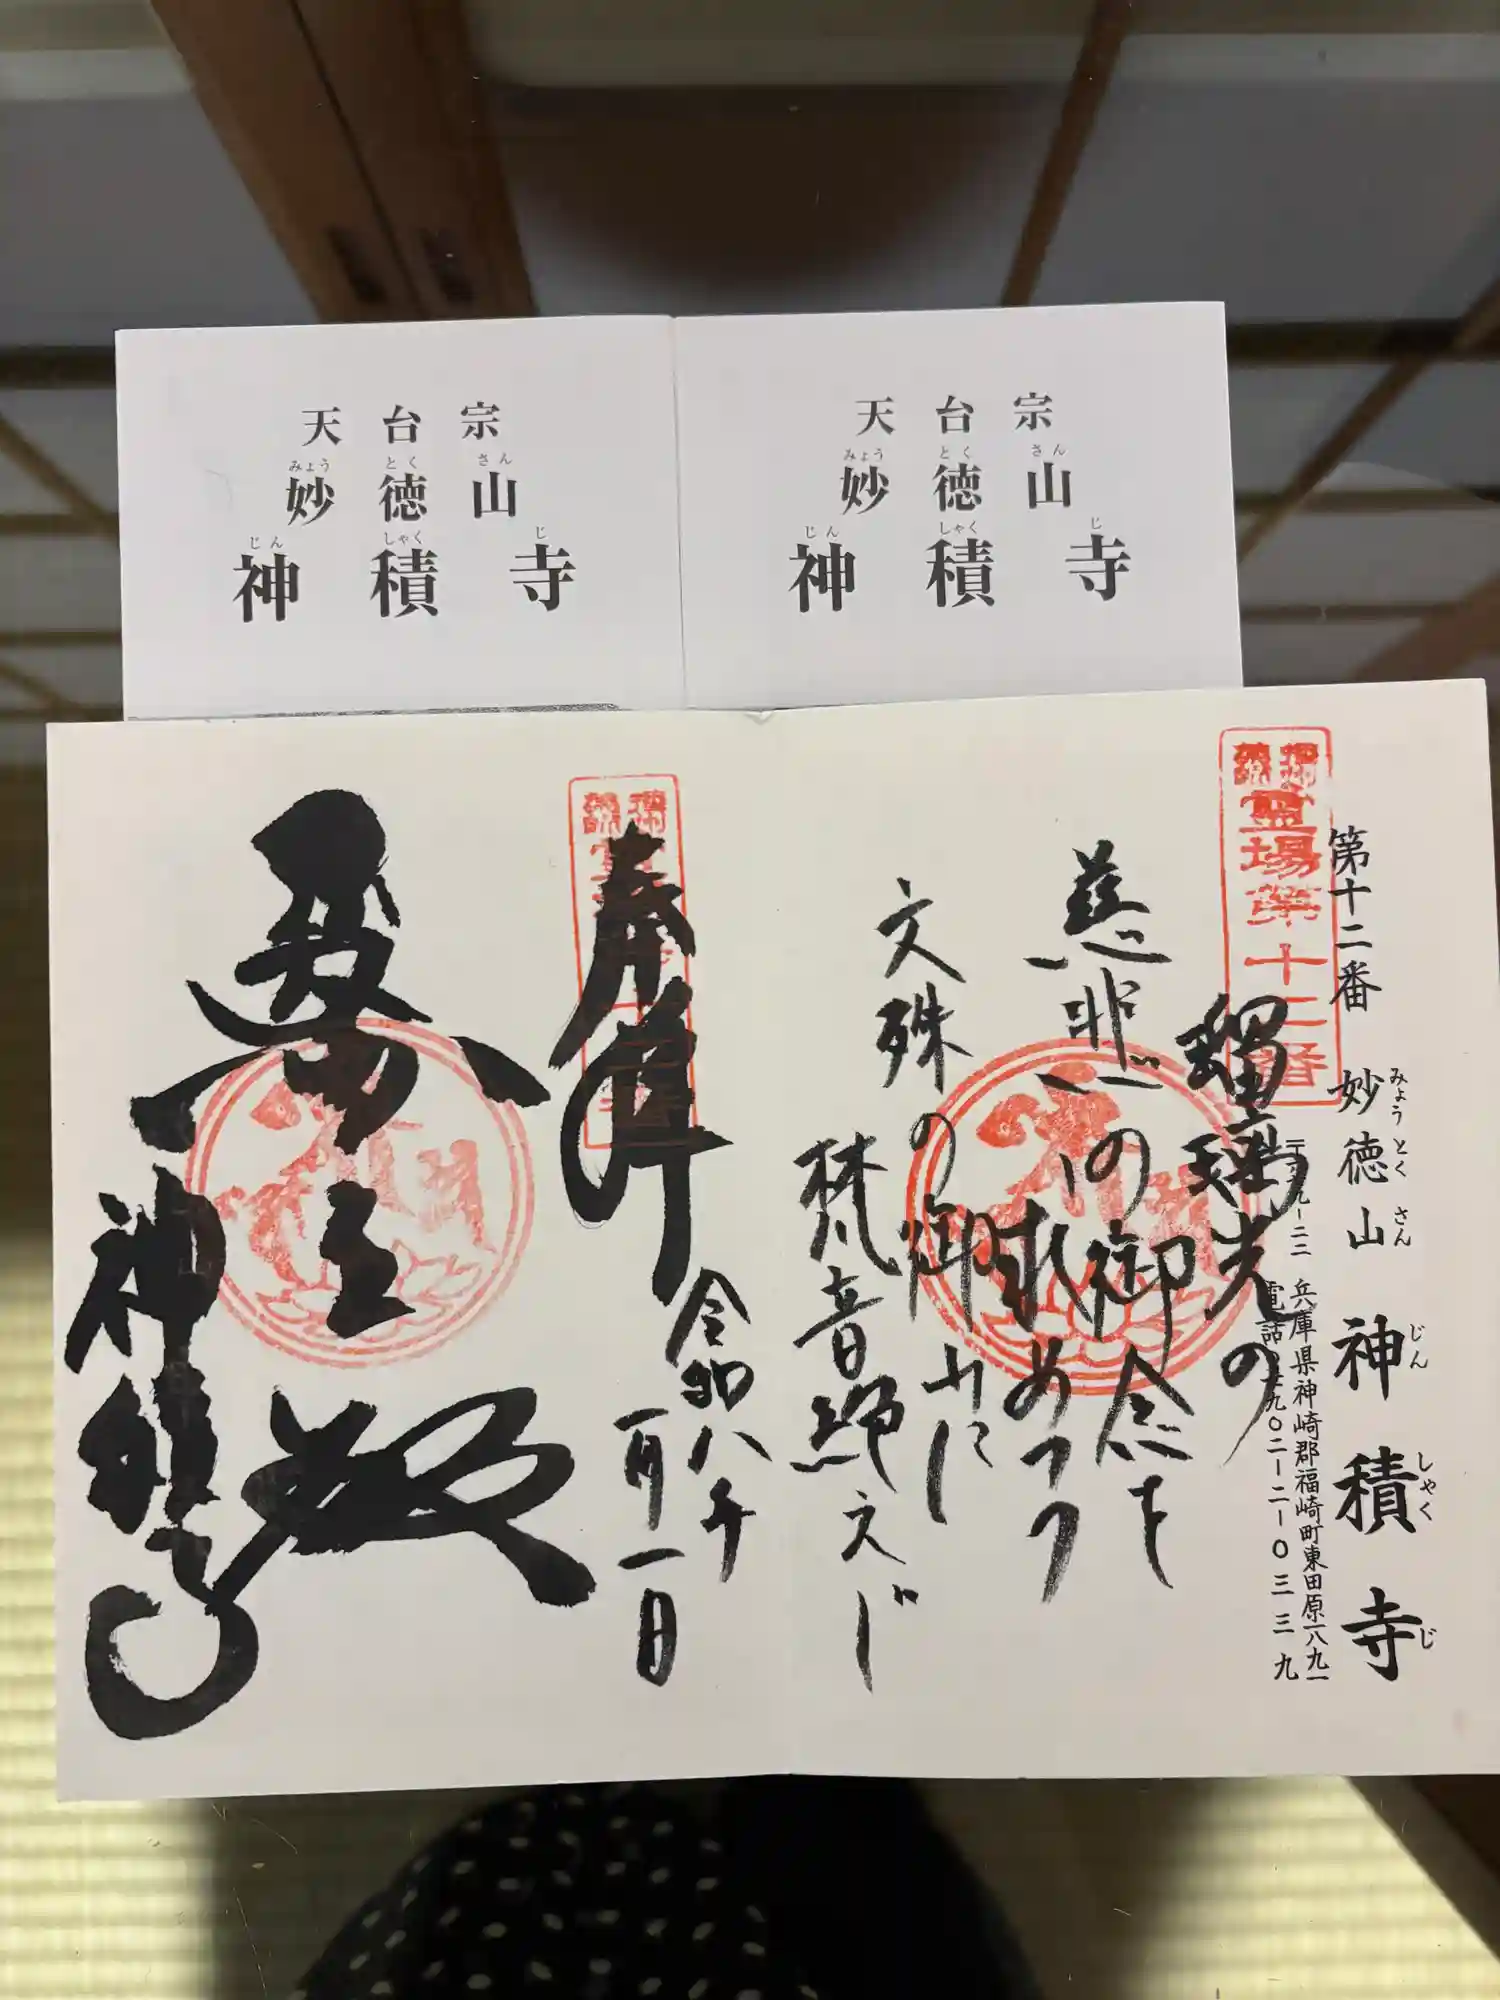 天台宗
みょうとくさん
妙徳山
じんしゃくじ
神積寺
天台宗
みょうとくさん
妙徳山
じんしゃくじ
神積寺
第十二番 妙徳山 神積寺
みょうとくさん じんしゃくじ
兵庫県神崎郡福崎町東田原一八九一
電話 九〇二一二一〇三三九
霊場第十二番
瑠璃光の
慈悲の御念を
求めつつ
文殊の御山に
梵音絶えじ
奉拝
令和八年
一月一日
神積寺